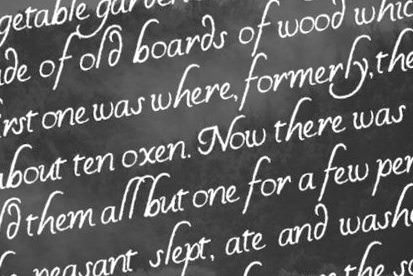 getable garden
de of old boards of wood whic
irst one was where, formerly, the
about ten oxen. Now there was
d them all but one for a few pen
peasant slept, ate and wash
the so